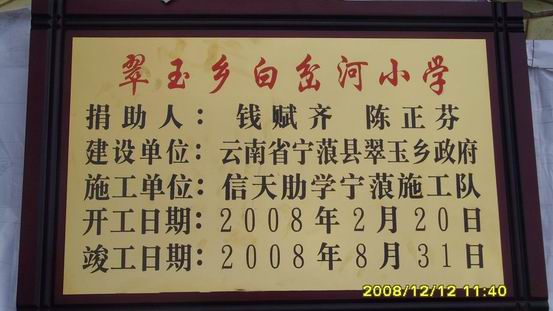 翠玉乡白岔河小学
捐助人： 钱赋齐 陈正芬
建设单位：云南省宁蒗县翠玉乡政府
施工单位：信天肋学宁蒗施工队
开工日期：2008年2月20日
竣工日期：2008年8月31日
2008/12/12 11:40